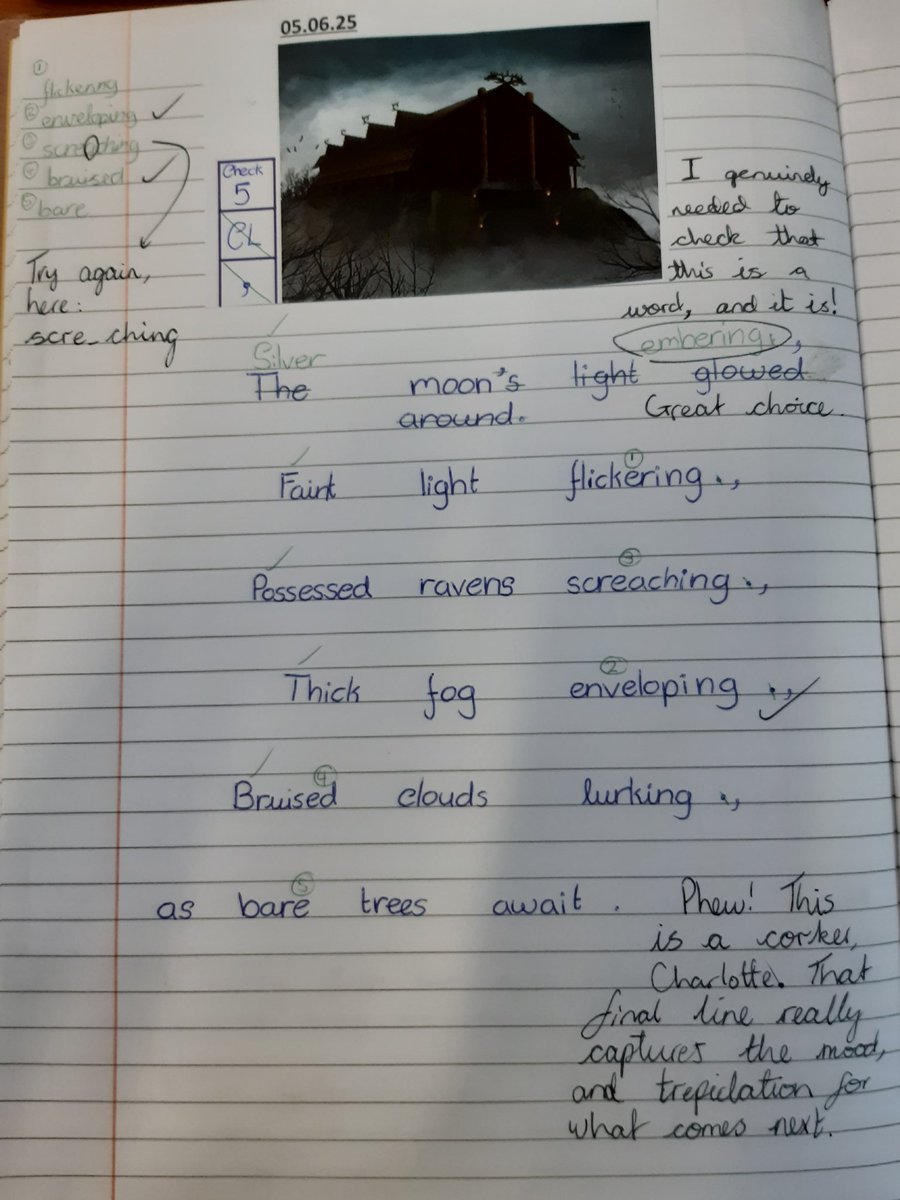 05.06.25
① flickering
② enveloping
③ screaching
④ bruised
⑤ bare
Try again,
here:
scre_ching
Check
5
CL
,
I genuinely
needed to
check that
this is a
word, and it is!
Silver embering,,
The moon's light glowed
around. Great choice.
Faint light flickering.,
Possessed ravens screaching.,
Thick fog enveloping.,
Bruised clouds lurking.,
as bare trees await. Phew! This
is a corker,
Charlotte. That
final line really
captures the mood,
and trepidation for
what comes next.